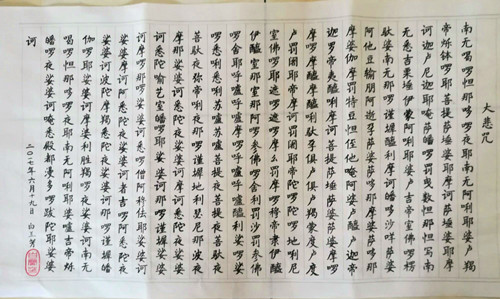 大悲咒
南无喝啰怛那哆啰夜耶南无阿唎耶婆卢羯
帝烁钵啰耶菩提萨埵婆耶摩诃萨埵婆耶摩
诃迦卢尼迦耶唵萨皤啰罚曳数怛那怛写南
无悉吉栗埵伊蒙阿唎耶婆卢吉帝室佛啰楞
驮婆南无那啰谨墀醯利摩诃皤哆沙咩萨婆
阿他豆输朋阿逝孕萨婆萨哆那摩婆萨哆那
摩婆伽摩罚特豆怛侄他唵阿婆卢醯卢迦帝
迦罗帝夷醯唎摩诃菩提萨埵萨婆萨婆摩啰
摩啰摩醯摩醯唎驮孕俱卢俱卢羯蒙度卢度
卢罚阇耶帝摩诃罚阇耶帝陀啰陀啰地唎尼
室佛啰耶遮啰遮啰摩么罚摩啰穆帝隶伊醯
伊醯室那室那阿啰参佛啰舍利罚沙罚参佛
啰舍耶呼嚧呼嚧摩啰呼嚧呼嚧醯利娑啰娑
啰悉唎悉唎苏嚧苏嚧菩提夜菩提夜菩驮夜
菩驮夜弥帝唎夜那啰谨墀地利瑟尼那波夜
摩那娑婆诃悉陀夜娑婆诃摩诃悉陀夜娑婆
诃悉陀喻艺室皤啰耶娑婆诃那啰谨墀娑婆
诃摩啰那啰娑婆诃悉啰僧阿穆佉耶娑婆诃
娑婆摩诃阿悉陀夜娑婆诃者吉啰阿悉陀夜
娑婆诃波陀摩羯悉陀夜娑婆诃那啰谨墀皤
伽啰耶娑婆诃摩婆利胜羯啰夜娑婆诃南无
喝啰怛那哆啰夜耶南无阿唎耶婆嚧吉帝烁
皤啰夜娑婆诃唵悉殿都漫多啰跋陀耶娑婆
诃
二〇一七年六月十九日